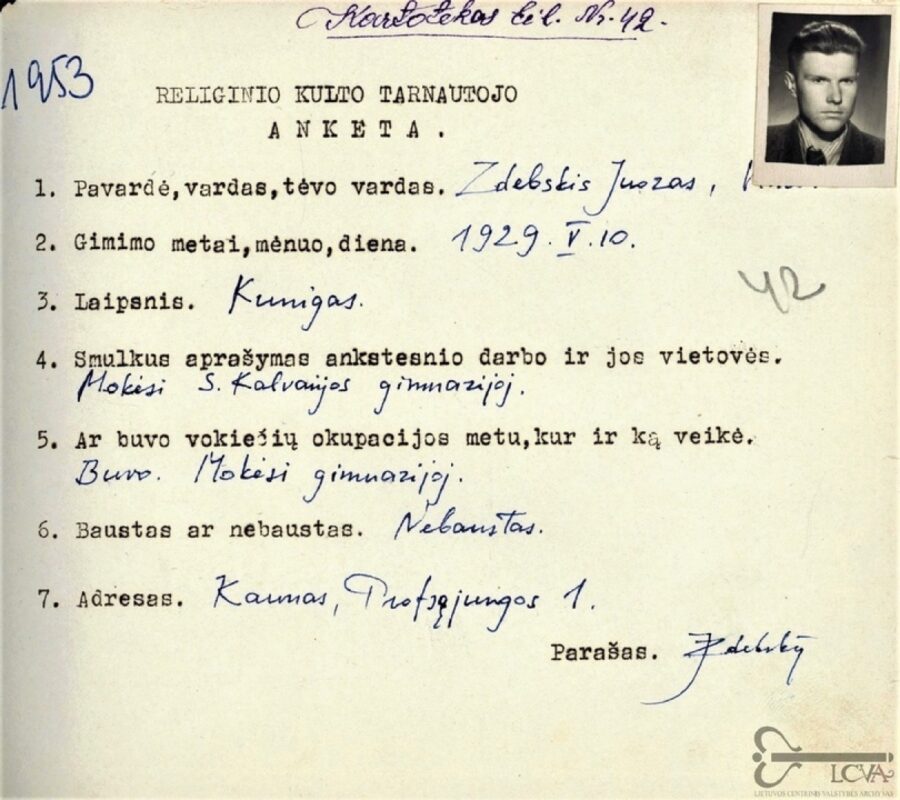 Kartotekos eil. Nr. 42.
1953
RELIGINIO KULTO TARNAUTOJO
ANKETA.
1. Pavardė,vardas,tėvo vardas. Zdebskis Juozas,
2. Gimimo metai,mėnuo,diena. 1929.V.10.
42
3. Laipsnis. Kunigas.
4. Smulkus aprašymas ankstesnio darbo ir jos vietovės.
Mokėsi S. Kalvarijos gimnazijoj.
5. Ar buvo vokiečių okupacijos metu,kur ir ką veikė.
Buvo. Mokėsi gimnazijoj.
6. Baustas ar nebaustas. Nebaustas.
7. Adresas. Kaunas, Profsąjungos 1.
Parašas. JZdebskis
LCVA
LIETUVOS CENTRINIS VALSTYBĖS ARCHYVAS